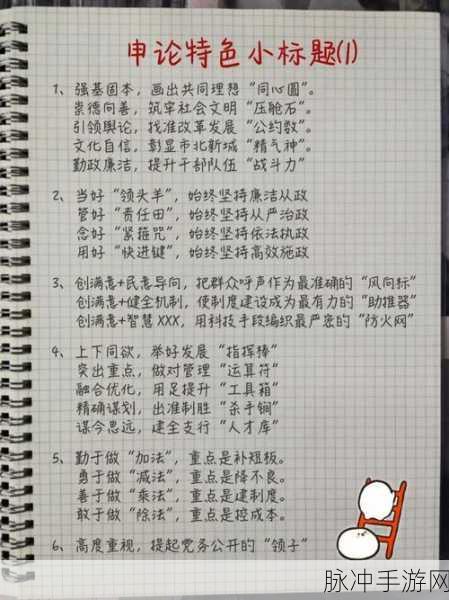 申论特色小标题(1)
1、强基固本，画出共同理想“同心圆”。
崇德向善，筑牢社会文明“压舱石”。
引领舆论，找准改革发展“公约数”。
文化自信，彰显市北新城“精气神”。
勤政廉洁，提升干部队伍“战斗力”
2、当好“领头羊”，始终坚持廉洁从政
管好“责任田”，始终坚持从严治政
念好“紧箍咒”，始终坚持依法执政
用好“快进键”，始终坚持高效施政
3、创满意+民意导向，把群众呼声作为最准确的“风向标”
创满意+健全机制，使制度建设成为最有力的“助推器”
创满意+智慧XXX，用科技手段编织最严密的“防火网”
4、上下同欲，举好发展“指挥棒”
突出重点，做对管理“运算符”
融合优化，用足提升“工具箱”
精确谋划，出准制胜“杀手锏”
谋今思远，建全支行“人才库”
5、勤于做“加法”，重点是补短板。
勇于做“减法”，重点是降不良。
善于做“乘法”，重点是建制度。
敢于做“除法”，重点是控成本。
6、高度重视，提起党务公开的“领子”
脉冲手游网